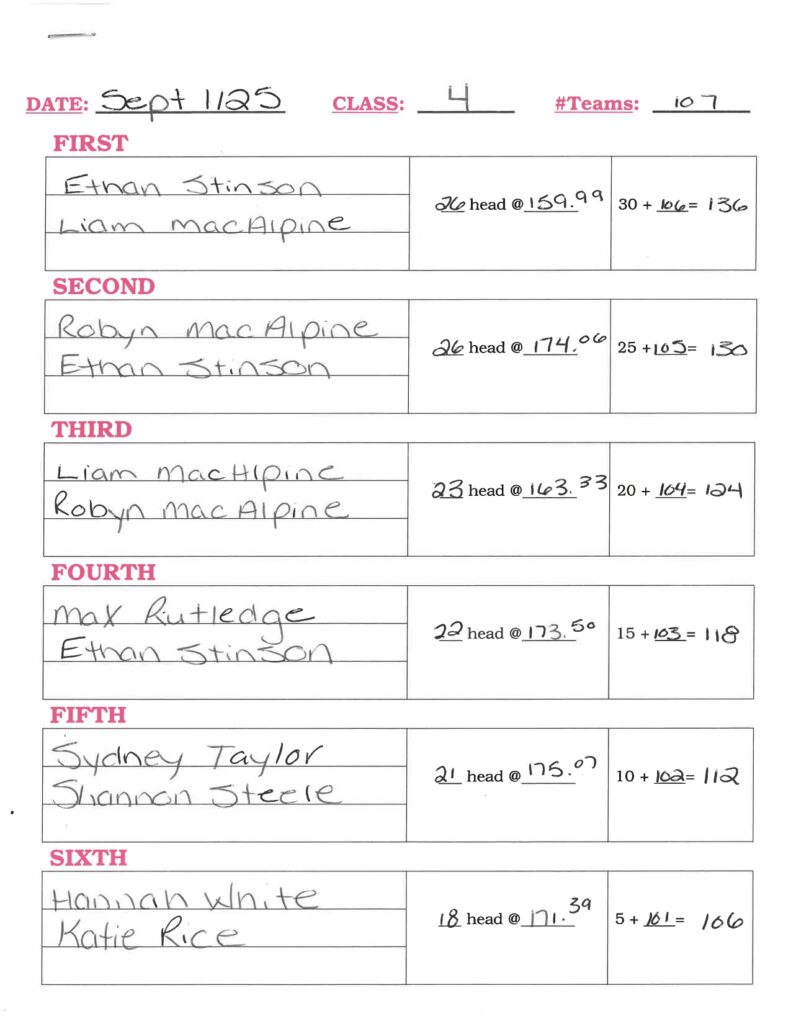 DATE: Sept 1/25 CLASS: 4 #Teams: 107
FIRST
Ethan Stinson
Liam MacAlpine
26 head @ 159.99
30 + 106 = 136
SECOND
Robyn MacAlpine
Ethan Stinson
26 head @ 174.06
25 + 105 = 130
THIRD
Liam MacAlpine
Robyn MacAlpine
23 head @ 163.33
20 + 104 = 124
FOURTH
Max Rutledge
Ethan Stinson
22 head @ 173.50
15 + 103 = 118
FIFTH
Sydney Taylor
Shannon Steele
21 head @ 175.07
10 + 102 = 112
SIXTH
Hannah White
Katie Rice
18 head @ 171.39
5 + 101 = 106